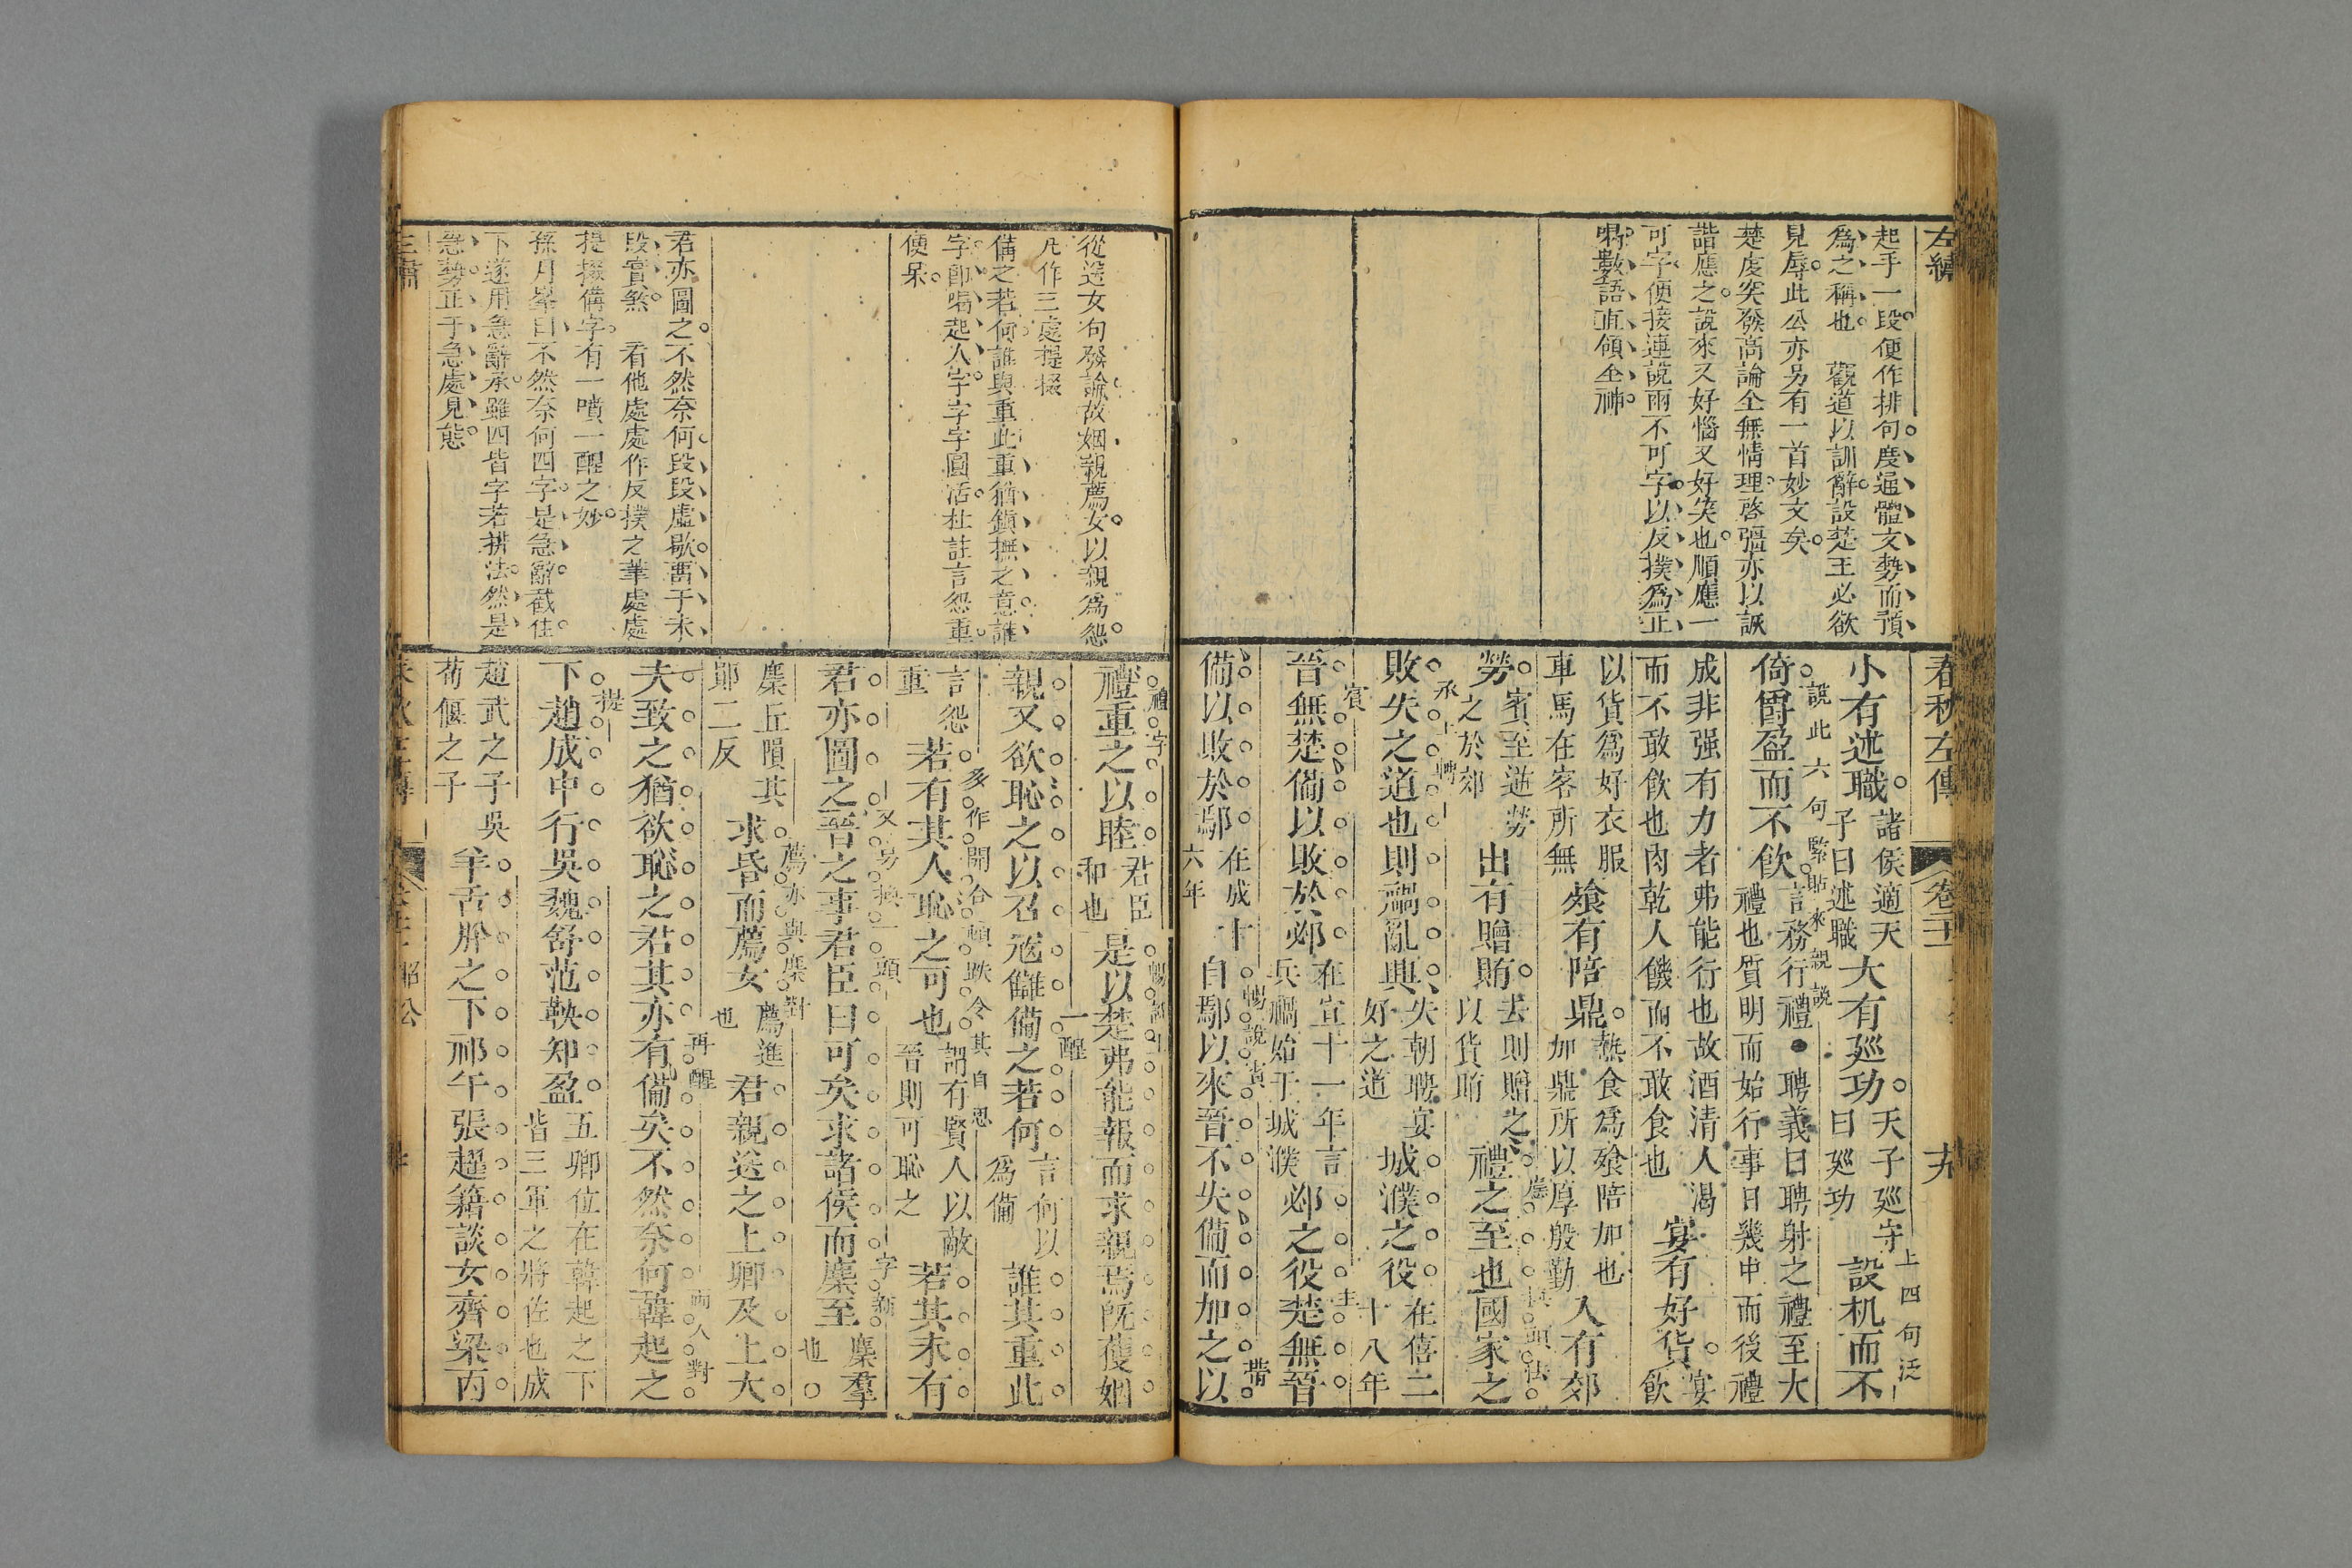 左繡
起手一段便作排句度通體文勢而預
爲之稱也　觀道以訓辭設楚王必欲
見辱此公亦另有一首妙文矣
楚虔突發高論全無情理啓彊亦以詼
諧應之說來又好惱又好笑也順應一
可字便接連說兩不可字以反撲爲正
喝數語直領全神
春秋左傳
卷二十一
小有述職
諸侯適天
子曰述職
大有巡功
天子巡守
曰巡功
上四句泛
設机而不
倚爵盈而不飲
說此六句緊貼來親說
言務行禮●聘義曰聘射之禮至大
禮也質明而始行事日幾中而後禮
成非强有力者弗能行也故酒清人渴
而不敢飲也肉乾人饑而不敢食也
宴有好貨
宴飲
以貨爲好衣服
車馬在客所無
飧有陪鼎
熱食爲飧陪加也
加鼎所以厚殷勤
入有郊
勞
賓至逆勞
之於郊
出有贈賄
去則贈之
以貨賄
禮之至也國家之
敗失之道也則禍亂興
承上轉
失朝聘宴
好之道
城濮之役
在僖二
十八年
晉無楚備以敗於邲
賓
在宣十一年言
兵禍始于城濮
邲之役楚無晉
主
備以敗於鄢
在成十
六年
自鄢以來晉不失備而加之以
暢說賓
帶
從送女句發論故姻親薦女以親爲怨
凡作三處提掇
備之若何誰與重此重猶鎭撫之意誰
字即喝起人字字字圓活杜註言怨重
便呆
君亦圖之不然奈何段段虛歇書于末
段實煞　看他處處作反撲之筆處處
提掇備字有一噴一醒之妙
孫月峯曰不然奈何四字是急辭截住
下遂用急辭承雖四皆字若排法然是
急勢正于急處見態
禮重之以睦
禮字
君臣
和也
是以楚弗能報而求親焉旣獲姻
親又欲恥之以召寇讎備之若何
一醒
言何以
爲備
誰其重此
言怨
重
若有其人恥之可也
多作開合頓跌令其自思
謂有賢人以敵
晉則可恥之
若其未有
君亦圖之晉之事君臣曰可矣求諸侯而麇至
又另換一頭
字新
麇羣
也○
麇丘隕其
郧二反
求昏而薦女
薦亦與麇對
薦進
也
君親送之上卿及上大
夫致之猶欲恥之君其亦有備矣不然奈何韓起之
再醒
兩人對
下趙成中行吳魏舒范鞅知盈
提
五卿位在韓起之下
皆三軍之將佐也成
趙武之子吳
荀偃之子
羊舌肸之下祁午張趯籍談女齊梁丙
昭公